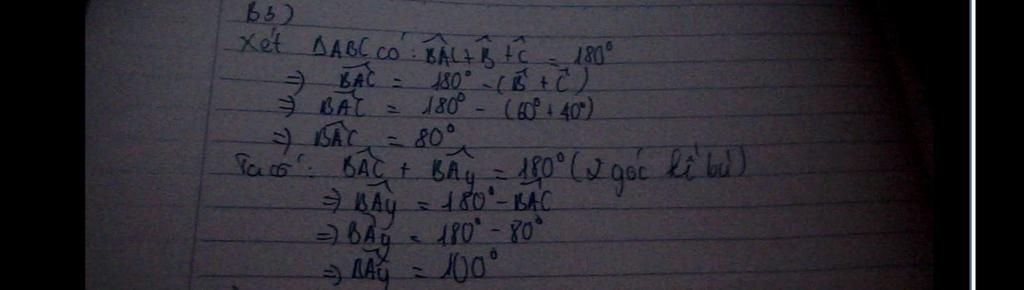 B3)
Xét ΔABC có: BAC + B + C = 180°
⇒ BAC = 180° - (B + C)
⇒ BAC = 180° - (60° + 40°)
⇒ BAC = 80°
Ta có: BAC + BAy = 180° (2 góc kề bù)
⇒ BAy = 180° - BAC
⇒ BAy = 180° - 80°
⇒ BAy = 100°